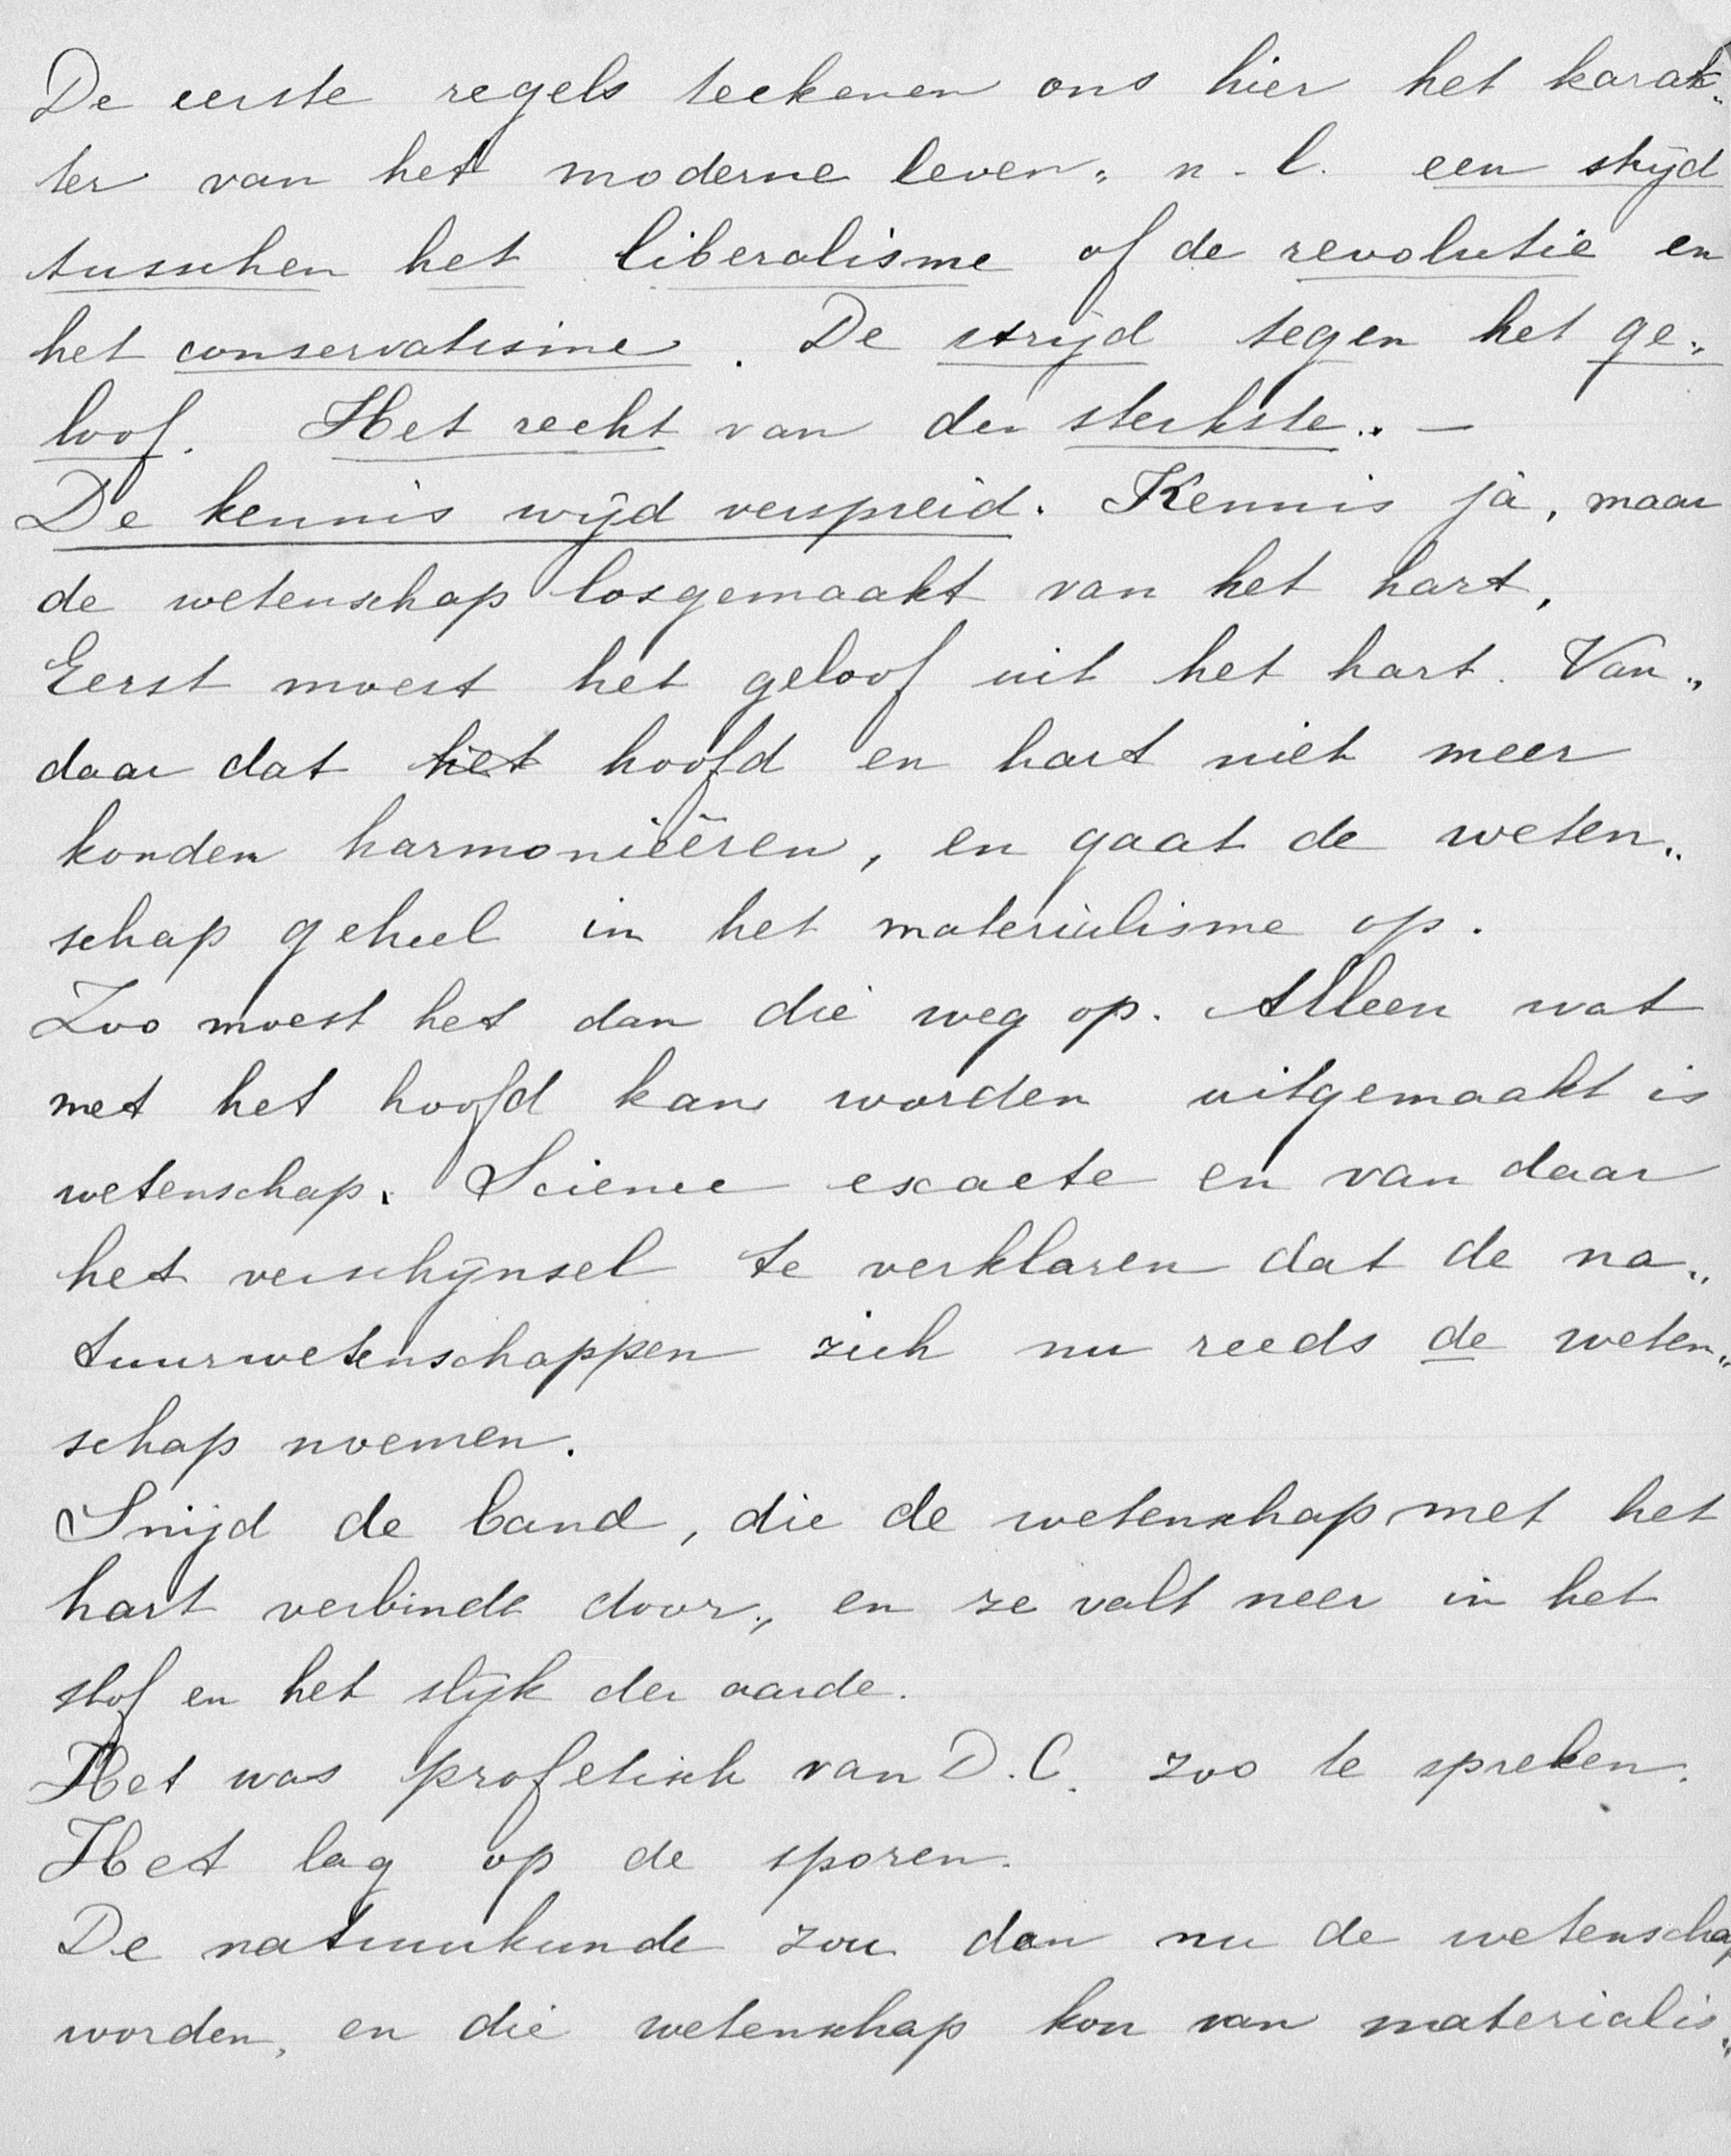 De eerste regels teekenen ons hier het karak„
ter van het moderne leven„ n.l. een strijd
tusschen het liberalisme of de revolutie en
het conservatisme. De strijd tegen het ge„
loof. Het recht van den sterkste. —
De kennis wijd verspreid. Kennis ja, maar
de wetenschap losgemaakt van het hart.
Eerst moest het geloof uit het hart. Van„
daar dat het hoofd en hart niet meer
konden harmonieëren, en gaat de weten„
schap geheel in het materialisme op.
Zoo moest het dan die weg op. Alleen wat
met het hoofd kan worden uitgemaakt is
wetenschap. Science exacte en van daar
het verschijnsel te verklaren dat de na„
tuurwetenschappen zich nu reeds de weten„
schap noemen.
Snijd de band, die de wetenschap met het
hart verbindt door„ en ze valt neer in het
stof en het slijk der aarde.
Het was profetisch van D.C. zoo te spreken.
Het lag op de sporen.
De natuurkunde zou dan nu de wetenschap
worden, en die wetenschap kon van materialis„